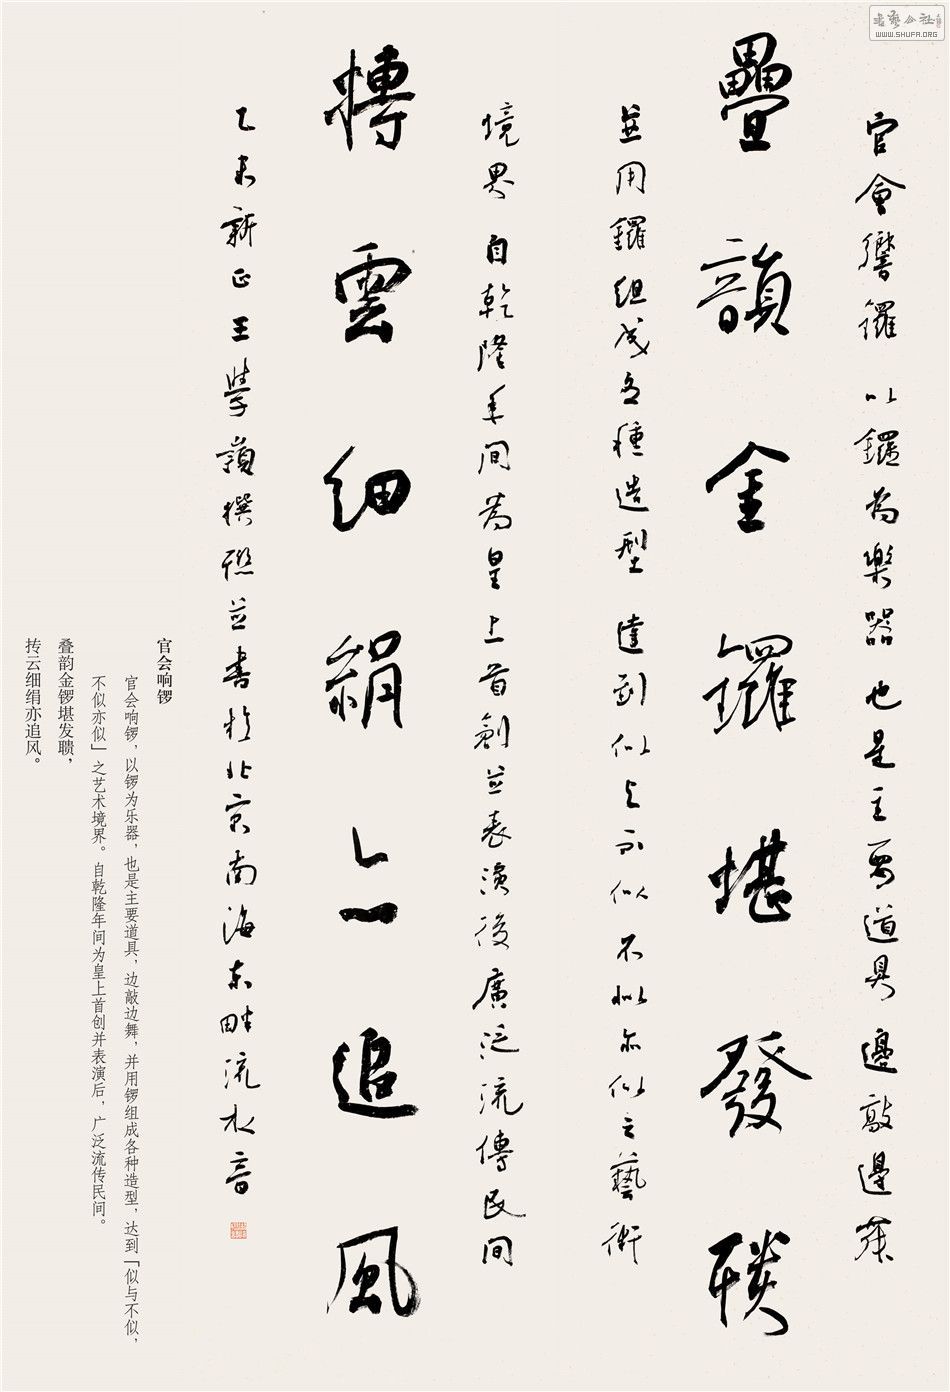 官會響鑼 以鑼為樂器 也是主要道具 邊敲邊舞
疊韻金鑼堪發聵
並用鑼組成各種造型 達到似与不似不似亦似之藝術
境界 自乾隆年间為皇上首創並表演後廣泛流傳民间
摶雲细絹亦追風
乙未新正王學嶺撰聯並書於北京南海东畔流水音
官会响锣
官会响锣，以锣为乐器，也是主要道具，边敲边舞，并用锣组成各种造型，达到「似与不似，
不似亦似」之艺术境界。自乾隆年间为皇上首创并表演后，广泛流传民间。
叠韵金锣堪发聩，
抟云细绢亦追风。
書藝公社
WWW.SHUFA.ORG